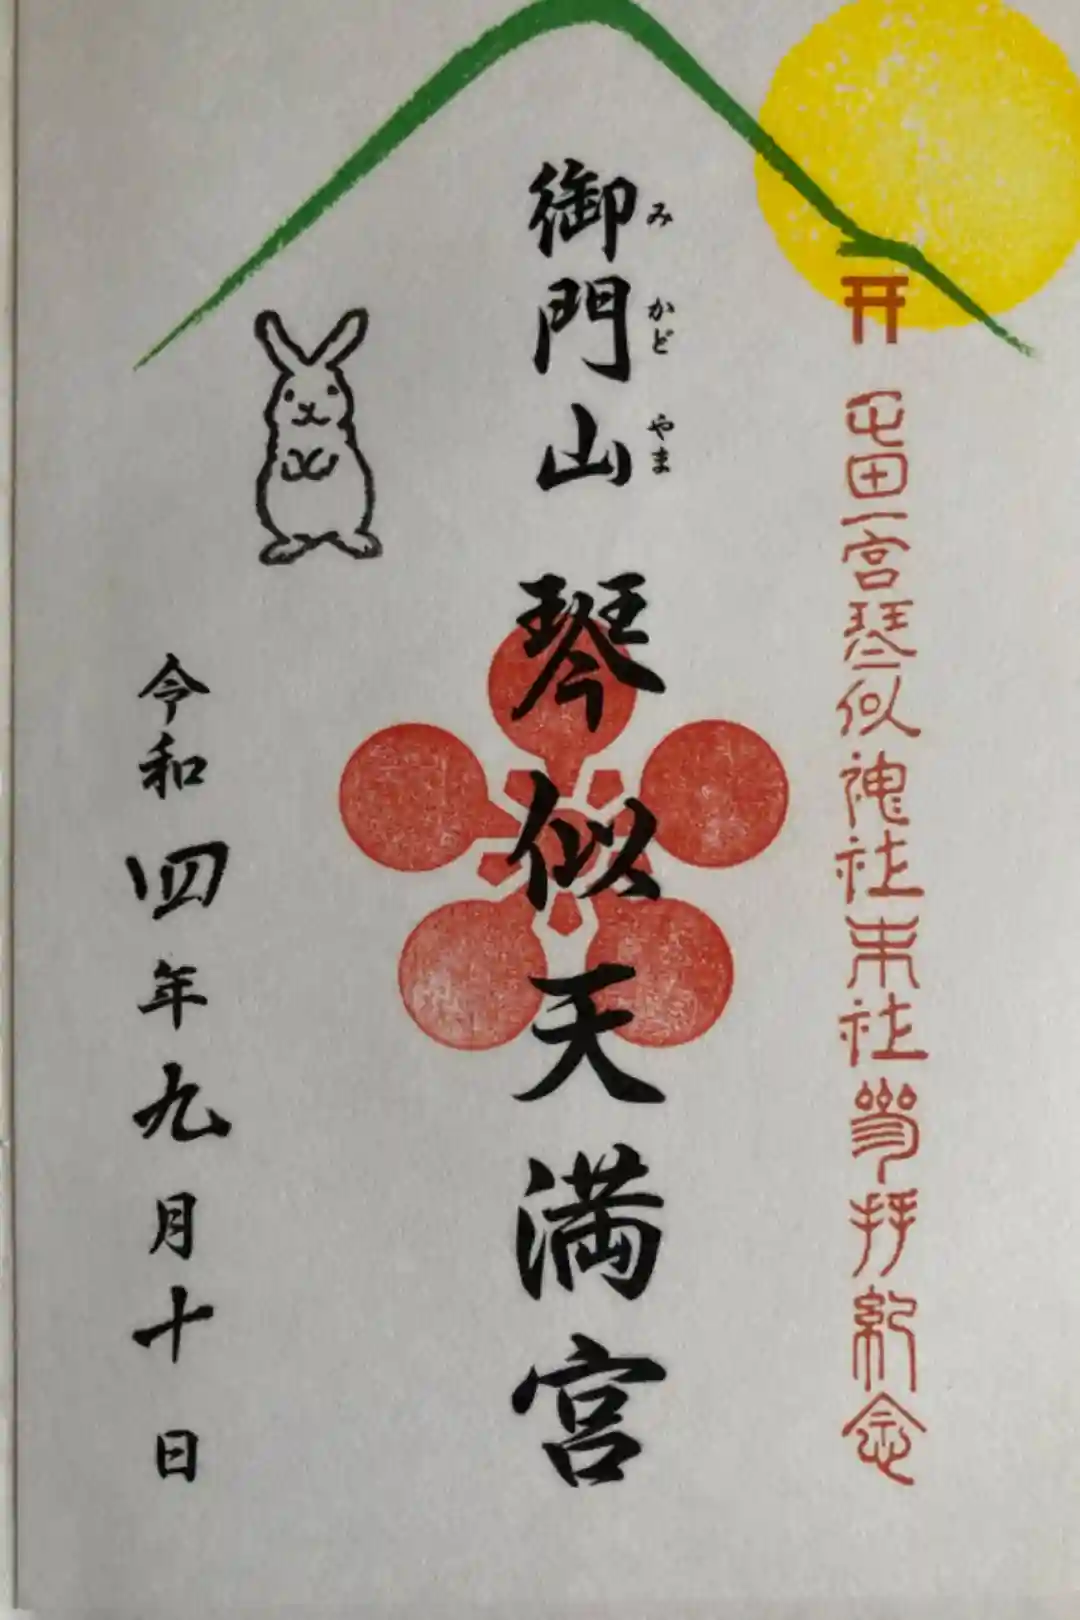 屯田一宮琴似神社末社参拝紀念
御門山 琴似天満宮
みかどやま
令和四年九月十日